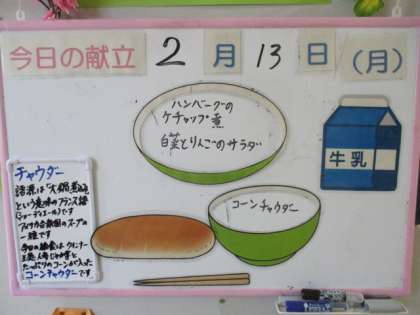 今日の献立 2月13日(月)
ハンバーグの
ケチャップ煮
白菜とりんごのサラダ
牛乳
コーンチャウダー
チャウダー
語源は「大鍋煮込」
という意味のフランス語
(ショーディエール)です
アメリカ合衆国のスープの
一種です
今日の給食はウィンナー
玉ねぎ人参じゃが芋と
たっぷりのコーンが入った
コーンチャウダーです